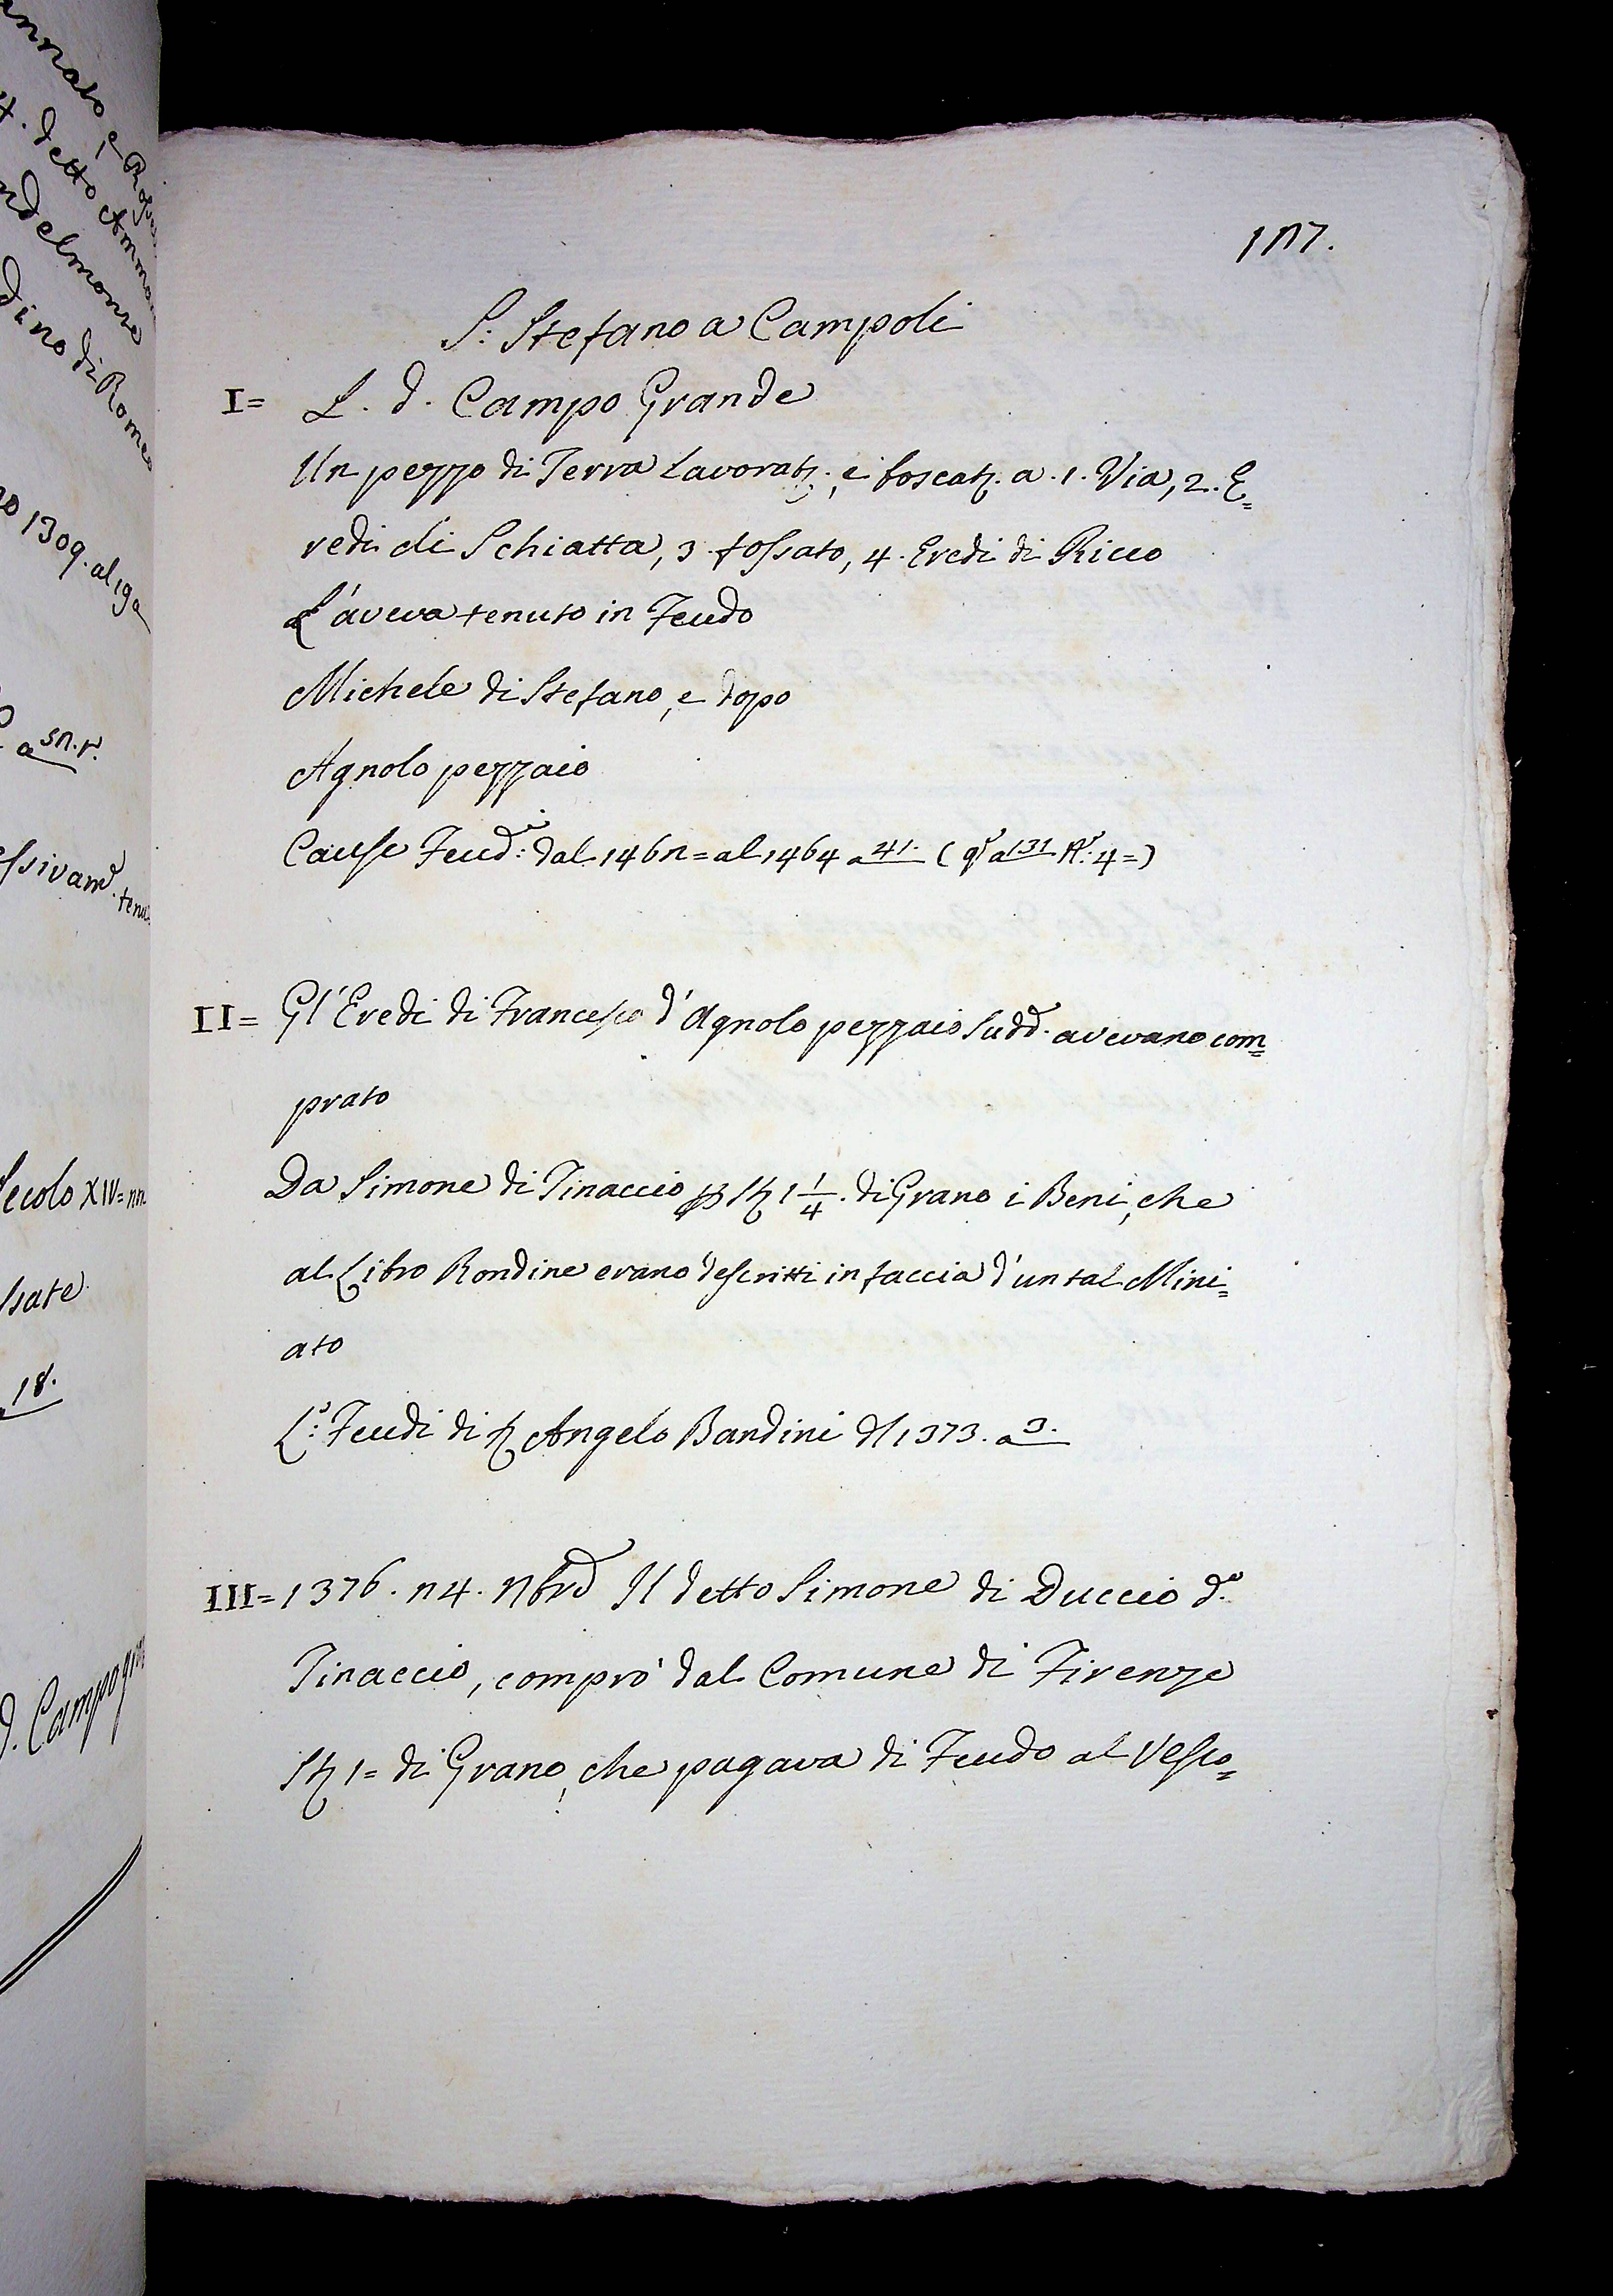 annato e
t. detto Amma
ndelmonte
dino di Romeo
no 1309. al 192
a 52. t.
essivam.e tenu
Secolo XIV = 22
sate
18.
d. Campogra
127.
S: Stefano a Campoli
I = L. d. Campo Grande
Un pezzo di Terra Lavorat., e boscat. a .1. Via, 2. E=
redi di Schiatta, 3. fossato, 4. Eredi di Ricco
L'aveva tenuto in Feudo
Michele di Stefano, e dopo
Agnolo pezzaio
Cause Feud:i dal 1462 = al 1464 a 41. ( q.o a 131 N.o: 4 = )
II = Gl'Eredi di Francesco d'Agnolo pezzaio Sudd. avevano com=
prato
Da Simone di Tinaccio p St 1 1/4. di Grano i Beni, che
al Libro Rondine erano descritti in faccia d'un tal Mini=
ato
L:o Feudi di s Angelo Bandini dl 1373. a 3.
III = 1376. 24. Nbre Il detto Simone di Duccio d.o
Tinaccio, comprò dal Comune di Firenze
St 1 = di Grano, che pagava di Feudo al Vesco=